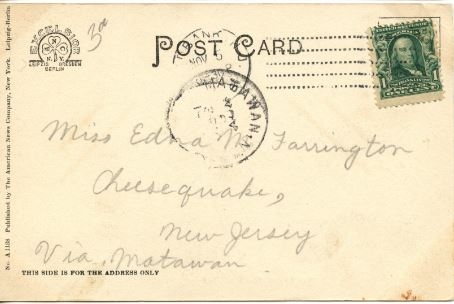 EXCELSIOR
N.Y.
LEIPZIG DRESDEN
BERLIN
3a
POST CARD
NOV 5
1
MATAWAN
Miss Edna M. Farrington
Cheesequake,
New Jersey
Via, Matawan
THIS SIDE IS FOR THE ADDRESS ONLY
No. A 1138 Published by The American News Company, New York. Leipzig-Berlin